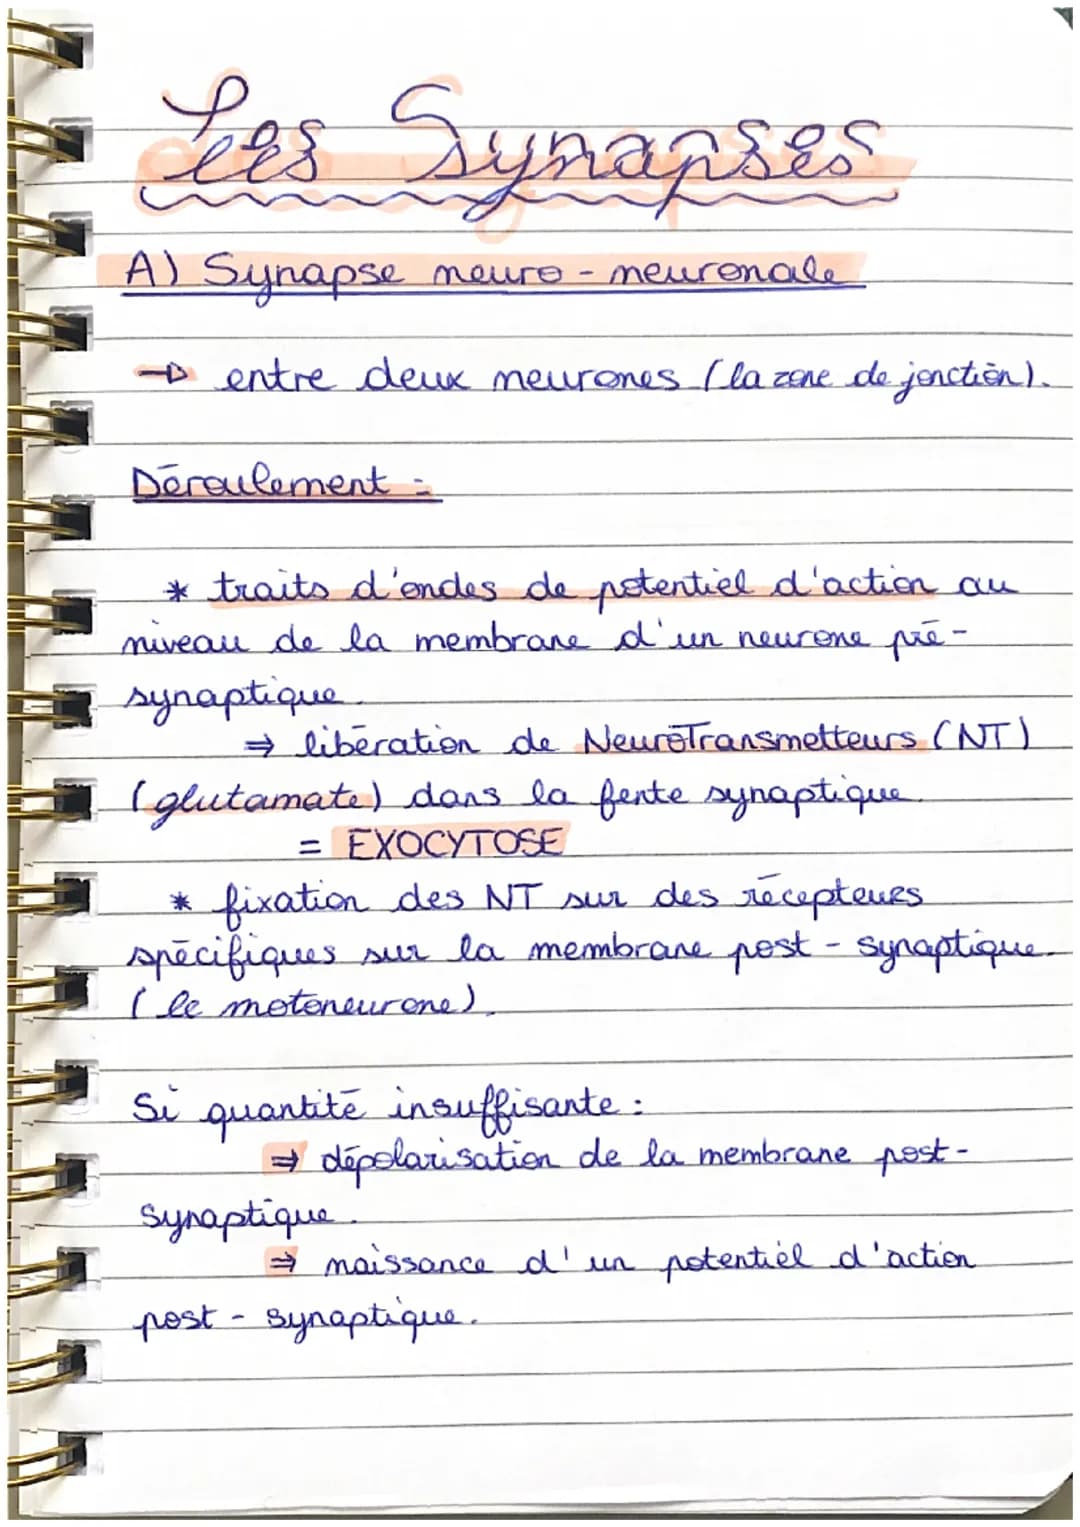 Les Synapses
A) Synapse neuro - neuronale
→ entre deux neurones (la zone de jonction).
Déroulement :
* traits d'ondes de potentiel d'action au
niveau de la membrane d'un neurone pré-
synaptique.
⇒ libération de NeuroTransmetteurs (NT)
(glutamate) dans la fente synaptique.
= EXOCYTOSE
* fixation des NT sur des récepteurs
spécifiques sur la membrane post - synaptique.
(le motoneurone).
Si quantité insuffisante :
⇒ dépolarisation de la membrane post-
synaptique.
⇒ naissance d'un potentiel d'action
post - synaptique.